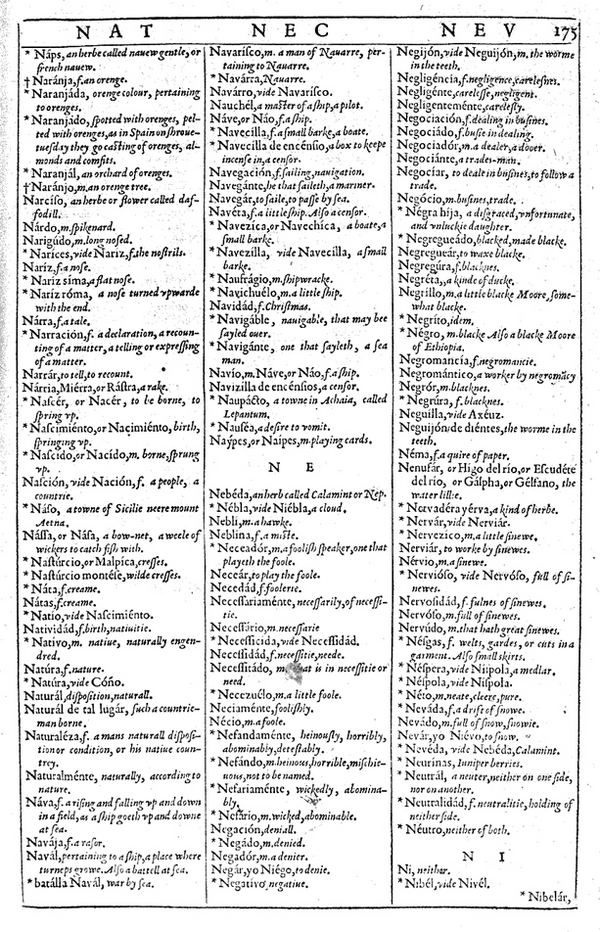 NAT NEC NEV 175
* Náps, an herbe called nauew gentle, or
french nauew.
† Naránja, f. an orenge.
* Naranjáda, orenge colour, pertaining
to orenges.
* Naranjádo, spotted with orenges, pel-
ted with orenges, as in Spain on shroue-
tuesday they go casting of orenges, al-
monds and comfits.
* Naranjál, an orchard of orenges.
† Naránjo, m. an orenge tree.
Narcíso, an herbe or flower called daf-
fodill.
Nárdo, m. spikenard.
Narigúdo, m. long nosed.
* Narízes, vide Naríz, f. the nostrils.
Naríz, f. a nose.
* Naríz síma, a flat nose.
* Naríz róma, a nose turned vpwarde
with the end.
Nárra, f. a tale.
* Narración, f. a declaration, a recoun-
ting of a matter, a telling or expressing
of a matter.
Narrár, to tell, to recount.
Nárria, Miérra, or Rástra, a rake.
* Nascér, or Nacér, to be borne, to
spring vp.
* Nascimiénto, or Nacimiénto, birth,
springing vp.
* Nascído, or Nacído, m. borne, sprung
vp.
Nasción, vide Nación, f. a people, a
countrie.
* Náso, a towne of Sicilie neere mount
Aetna.
Nássa, or Nása, a bow-net, a weele of
wickers to catch fish with.
* Nastúrcio, or Malpica, cresses.
* Nastúrcio montése, wilde cresses.
* Náta, f. creame.
Nátas, f. creame.
* Natío, vide Nascimiénto.
Natividád, f. birth, natiuitie.
* Natívo, m. natiue, naturally engen-
dred.
Natúra, f. nature.
* Natúra, vide Cóño.
Naturál, disposition, naturall.
Naturál de tal lugár, such a countrie-
man borne.
Naturaléza, f. a mans naturall disposi-
tion or condition, or his natiue coun-
trey.
Naturalménte, naturally, according to
nature.
Náva, f. a rising and falling vp and down
in a field, as a ship goeth vp and downe
at sea.
Navája, f. a rasor.
Navál, pertaining to a ship, a place where
turneps growe. Also a battell at sea.
* batálla Navál, war by sea.
Navarísco, m. a man of Nauarre, per-
taining to Nauarre.
* Navárra, Nauarre.
Navárro, vide Navarísco.
Nauchél, a master of a ship, a pilot.
Náve, or Náo, f. a ship.
* Navecílla, f. a small barke, a boate.
* Navecílla de encénsio, a box to keepe
incense in, a censor.
Navegación, f. sailing, nauigation.
Navegánte, he that saileth, a mariner.
Navegár, to saile, to passe by sea.
Navéta, f. a little ship. Also a censor.
* Navezíca, or Navechíca, a boate, a
small barke.
* Navezílla, vide Navecílla, a small
barke.
* Naufrágio, m. shipwracke.
* Navichuélo, m. a little ship.
Navidád, f. Christmas.
* Navigáble, nauigable, that may bee
sayled ouer.
* Navigánte, one that sayleth, a sea
man.
Navío, m. Náve, or Náo, f. a ship.
Navizílla de encénsios, a censor.
* Naupácto, a towne in Achaia, called
Lepantum.
* Nauséa, a desire to vomit.
Naýpes, or Naipes, m. playing cards.
N E
Nebéda, an herb called Calamint or Nep.
* Nébla, vide Niébla, a cloud.
* Neblí, m. a hawke.
Neblína, f. a miste.
* Neceadór, m. a foolish speaker, one that
playeth the foole.
Neceár, to play the foole.
Necedád, f. foolerie.
Necessáriaménte, necessarily, of necessi-
tie.
Necessário, m. necessarie
* Necessicida, vide Necessidád.
Necessidád, f. necessitie, neede.
Necessitádo, m. that is in necessitie or
need.
* Necezuélo, m. a little foole.
Neciaménte, foolishly.
Nécio, m. a foole.
* Nefandaménte, heinously, horribly,
abominably, detestably.
* Nefándo, m. heinous, horrible, mischie-
uous, not to be named.
* Nefariaménte, wickedly, abomina-
bly.
* Nefário, m. wicked, abominable.
Negación, deniall.
* Negádo, m. denied.
Negadór, m. a denier.
Negár, yo Niégo, to denie.
* Negatívo, negatiue.
Negijón, vide Neguijón, m. the worme
in the teeth.
Negligéncia, f. negligence, carelesnes.
Negligénte, carelesse, negligent.
Negligenteménte, carelesly.
Negociación, f. dealing in busines.
Negociádo, f. busie in dealing.
Negociadór, m. a dealer, a dooer.
Negociánte, a trades-man.
Negociár, to deale in busines, to follow a
trade.
Negócio, m. busines, trade.
* Négra hija, a disgraced, vnfortunate,
and vnluckie daughter.
* Negregueádo, blacked, made blacke.
Negregueár, to waxe blacke.
Negregúra, f. blacknes.
Negréta, a kinde of ducke.
Negríllo, m. a little blacke Moore, some-
what blacke.
* Negríto, idem.
* Négro, m. blacke. Also a blacke Moore
of Ethiopia.
Negromancía, f. negromancie.
Negromántico, a worker by negromãcy
Negrór, m. blacknes.
* Negrúra, f. blacknes.
Neguílla, vide Axéuz.
Neguijón de diéntes, the worme in the
teeth.
Néma, f. a quire of paper.
Nenufár, or Higo del río, or Escudéte
del río, or Gálpha, or Gélfano, the
water lillie.
* Nervadéra yérva, a kind of herbe.
* Nervár, vide Nerviár.
* Nervezíco, m. a little sinewe.
Nerviár, to worke by sinewes.
Nérvio, m. a sinewe.
* Nervióso, vide Nervóso, full of si-
newes.
Nervosidád, f. fulnes of sinewes.
Nervóso, m. full of sinewes.
Nervúdo, m. that hath great sinewes.
* Nésgas, f. welts, gardes, or cuts in a
garment. Also small skirts.
* Néspera, vide Níspola, a medlar.
* Néspola, vide Níspola.
* Néto, m. neate, cleere, pure.
* Neváda, f. a drift of snowe.
Nevádo, m. full of snow, snowie.
Nevár, yo Niévo, to snow.
* Nevéda, vide Nebéda, Calamint.
* Neurínas, Iuniper berries.
* Neutrál, a neuter, neither on one side,
nor on another.
* Neutralidád, f. neutralitie, holding of
neither side.
* Néutro, neither of both.
N I
Ni, neither.
* Nibél, vide Nivél.
* Nibelár,